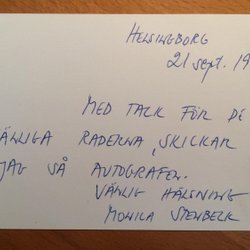 HELSINGBORG
21 sept. 19
MED TACK FÖR DE
ÄNLIGA RADERNA, SKICKAR
JAG SÅ AUTOGRAFEN.
VÄNLIG HÄLSNING
MONICA STENBECK